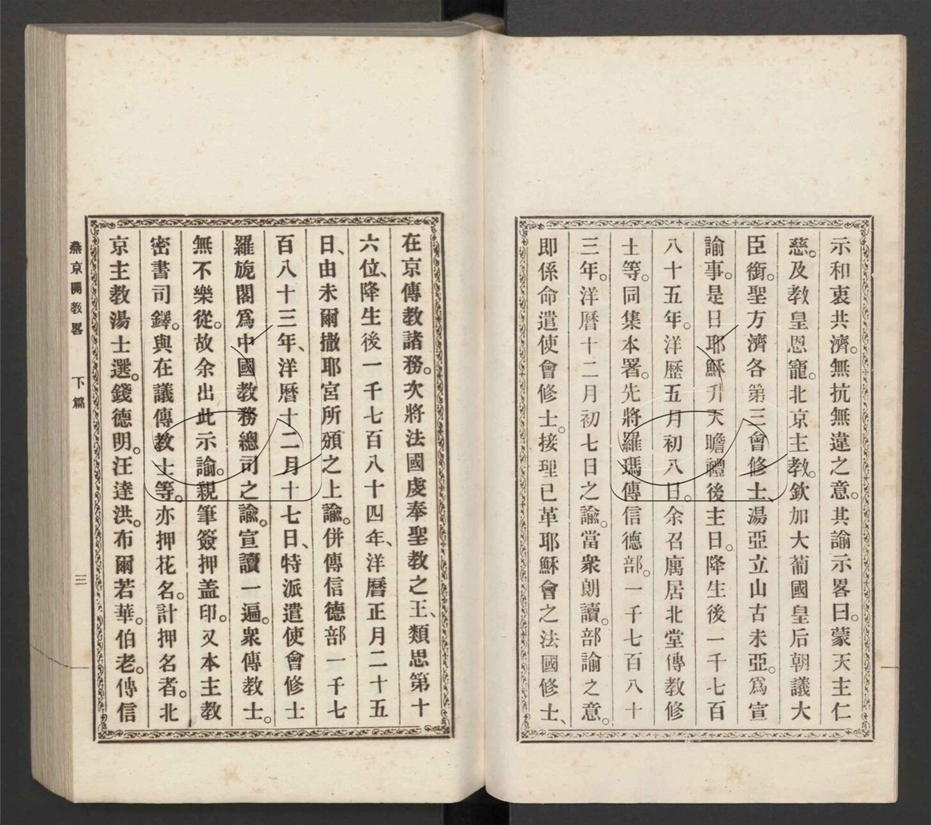 示和衷共濟。無抗無違之意。其諭示畧曰。蒙天主仁
慈。及教皇恩寵。北京主教。欽加大葡國皇后朝議大
臣銜。聖方濟各第三會修士湯亞立山古未亞。爲宣
諭事。是日耶穌升天瞻禮後主日。降生後一千七百
八十五年。洋歷五月初八日。余召寓居北堂傳教修
士等。同集本署。先將羅瑪傳信德部。一千七百八十
三年。洋曆十二月初七日之諭。當衆朗讀。部諭之意。
即係命遣使會修士。接理已革耶穌會之法國修士、
在京傳教諸務。次將法國虔奉聖教之王、類思第十
六位、降生後一千七百八十四年、洋曆正月二十五
日、由未爾撒耶宮所頒之上諭。併傳信德部一千七
百八十三年、洋曆十二月十七日、特派遣使會修士
羅旎閣爲中國教務總司之諭。宣讀一遍。衆傳教士。
無不樂從。故余出此示諭。親筆簽押盖印。又本主教
密書司鐸。與在議傳教士等。亦押花名。計押名者。北
京主教湯士選。錢德明。汪達洪。布爾若華。伯老。傳信
燕京開教畧 下篇 三